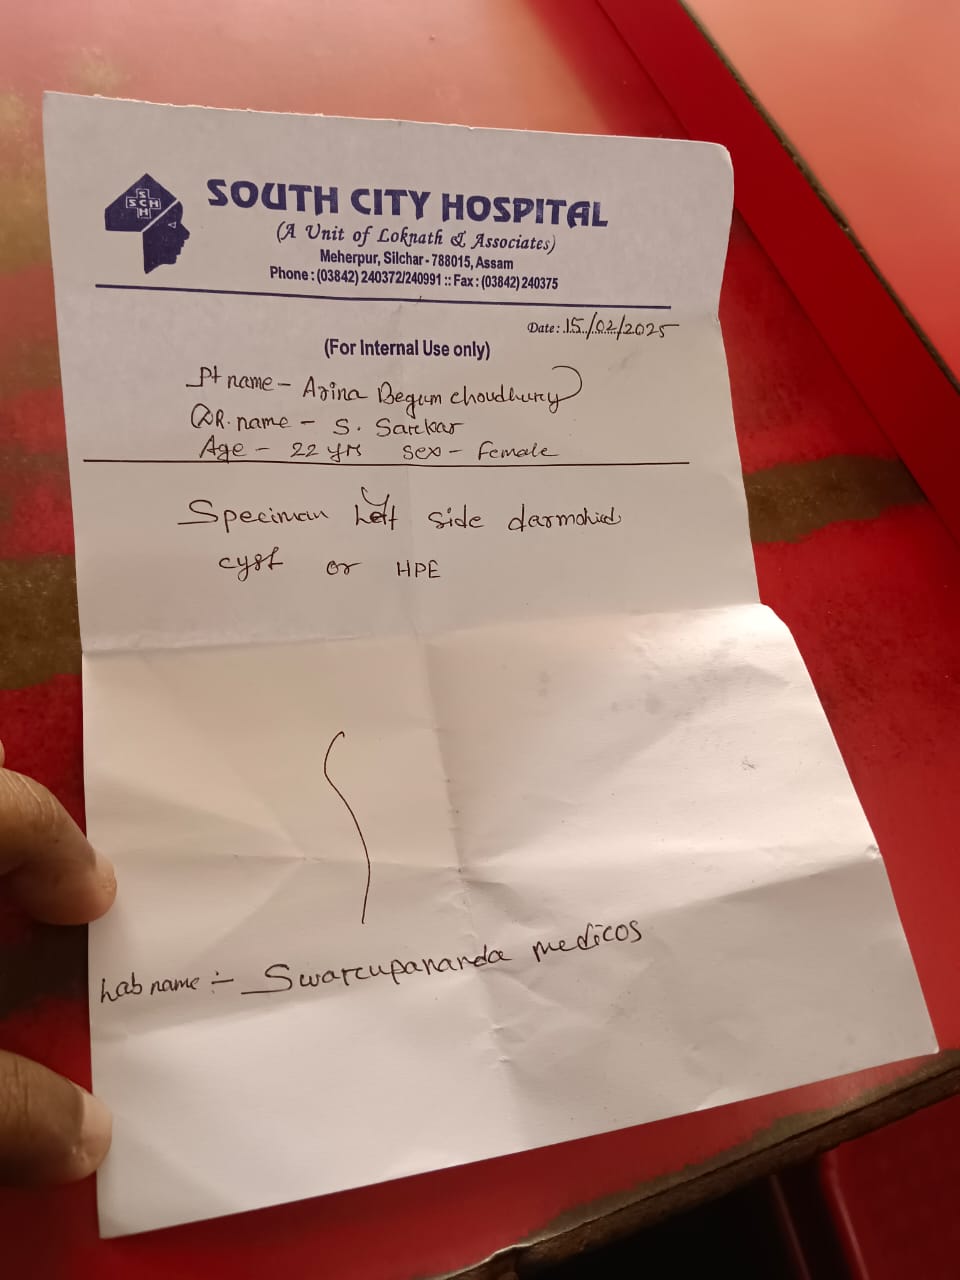 S
SCH
H
SOUTH CITY HOSPITAL
(A Unit of Loknath & Associates)
Meherpur, Silchar - 788015, Assam
Phone : (03842) 240372/240991 :: Fax : (03842) 240375
Date : 15/02/2025
(For Internal Use only)
Pt name - Arina Begum choudhury
DR. name - S. Sarkar
Age - 22 yrs sex - Female
Speciman left side darmohid
cyst or HPE
Lab name :- Swarcupananda medicos